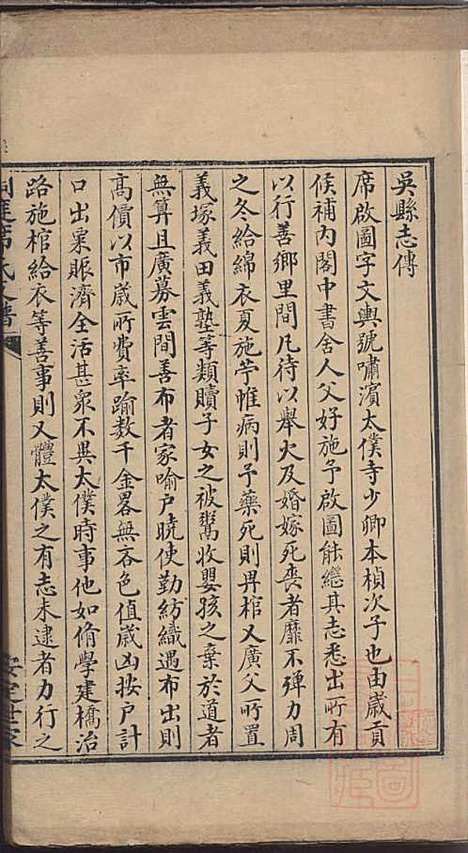 吳縣志傳
席啟圖字文輿號嘯濱太僕寺少卿本楨次子也由歲貢
候補內閣中書舍人父好施予啟圖能繼其志悉出所有
以行善鄉里間凡待以舉火及婚嫁死喪者靡不殫力周
之冬給綿衣夏施苧帷病則予藥死則畀棺又廣父所置
義塚義田義塾等類贖子女之被鬻收嬰孩之棄於道者
無算且廣募雲間善布者家喻戶曉使勤紡織遇布出則
高價以市歲所費率踰數千金畧無吝色值歲凶按戶計
口出粟賑濟全活甚衆不異太僕時事他如脩學建橋治
路施棺給衣等善事則又體太僕之有志未逮者力行之
洞庭席氏支譜
安定世家